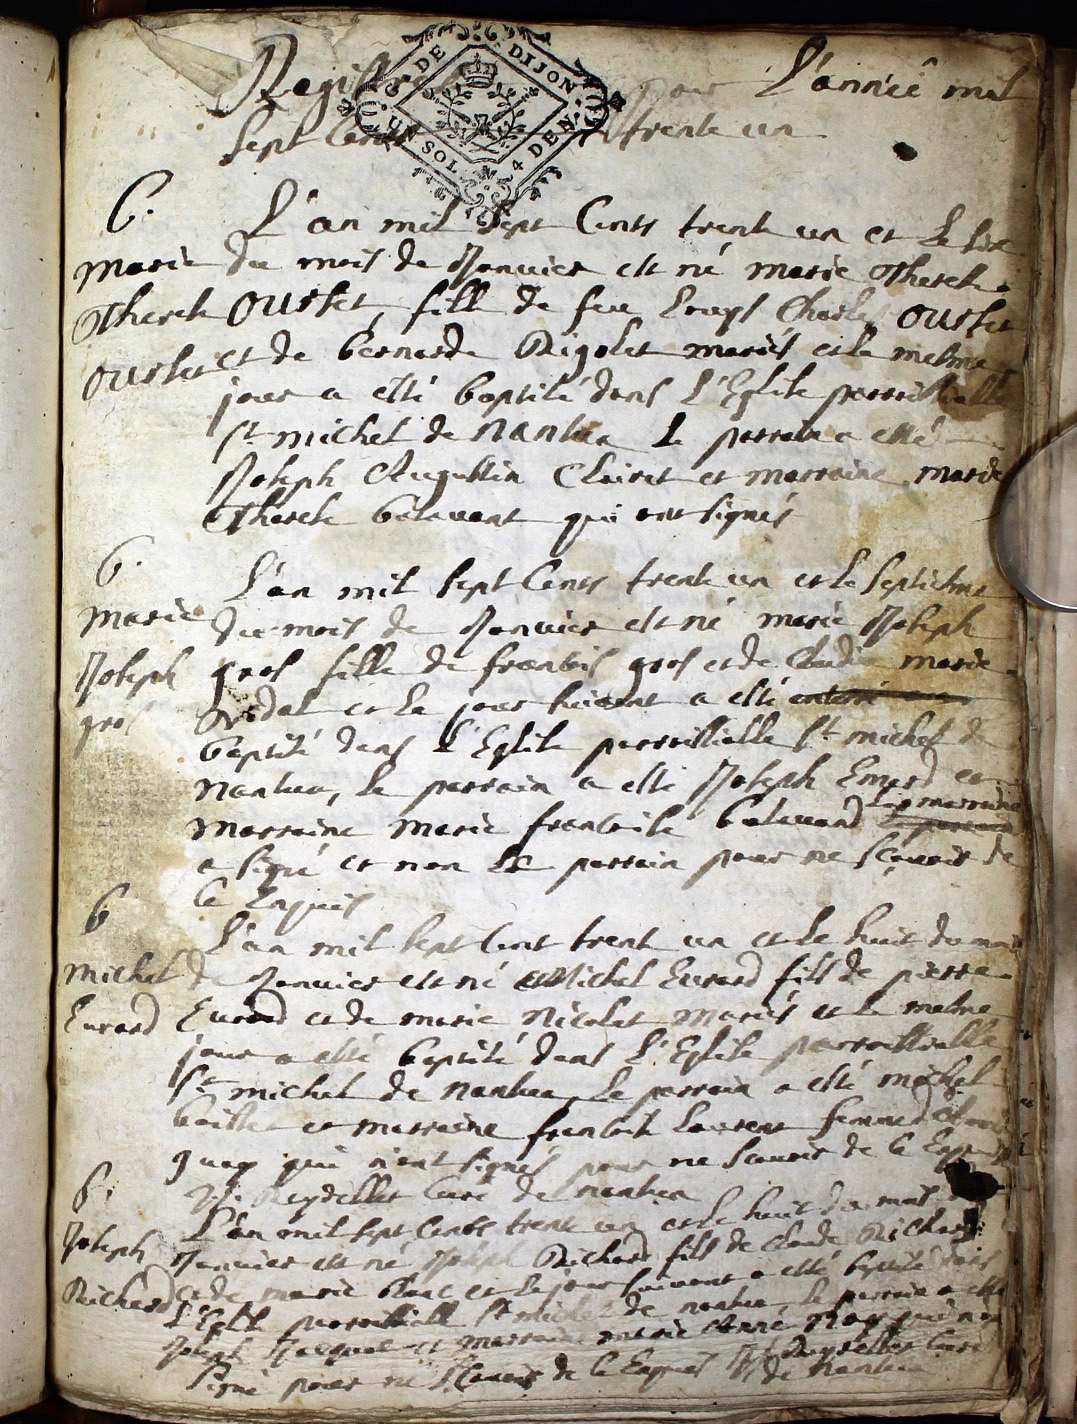 Registre pour L'année mil
DE DIJON
UN SOL 4 DEN.
sept Cents trente un
B.
L'an mil sept Cents trente un et le six
marie du mois de Janvier est né marie Therese
Therese Oursset, fille de feu Charles Oursset
Oursset et de bernarde Rigolet mariés et le mesme
jour a esté baptisé dans L'Eglise parroissialle
St michel de nantua le parrain a esté
Joseph Augustin Clairet et marraine marie
Therese balauant qui ont signés
B.
L'an mil sept Cents trente un et le septieme
marie du mois de Janvier est né marie Joseph
Joseph gros fille de francois gros et de Claudine marie
gros et le jour suivant a esté
baptisé dans L'Eglise parroissialle St michel de
nantua, le parrain a esté Joseph Emard et
marraine marie francoise balauand la marraine
a signé et non le parrain pour ne scauoir de
ce Enquis
B
L'an mil sept Cent trent un et le huit du mois
michel de Janvier est né Michel Eurard fils de pierre
Eurard Eurard et de marie Nicolet mariés et le mesme
jour a esté baptisé dans L'Eglise parroissialle
St michel de nantua, Le parrain a esté michel
et marraine francoise Laurent femme
qui n'ont signés pour ne scauoir de ce Enquis
Reydellet Curé de nantua
B.
L'an mil sept Cents trente un et le huit du mois
Joseph Janvier est né Joseph Richard fils de Claude Richard
Richard et de marie blanc et le jour suivant a esté baptisé dans
L'Eglise parroissialle St michel de nantua, le parrain a esté
Joseph Jacquet et marraine marie Anne Roy qui n'ont
signé pour ne scauoir de ce Enquis Reydellet Curé
de nantua